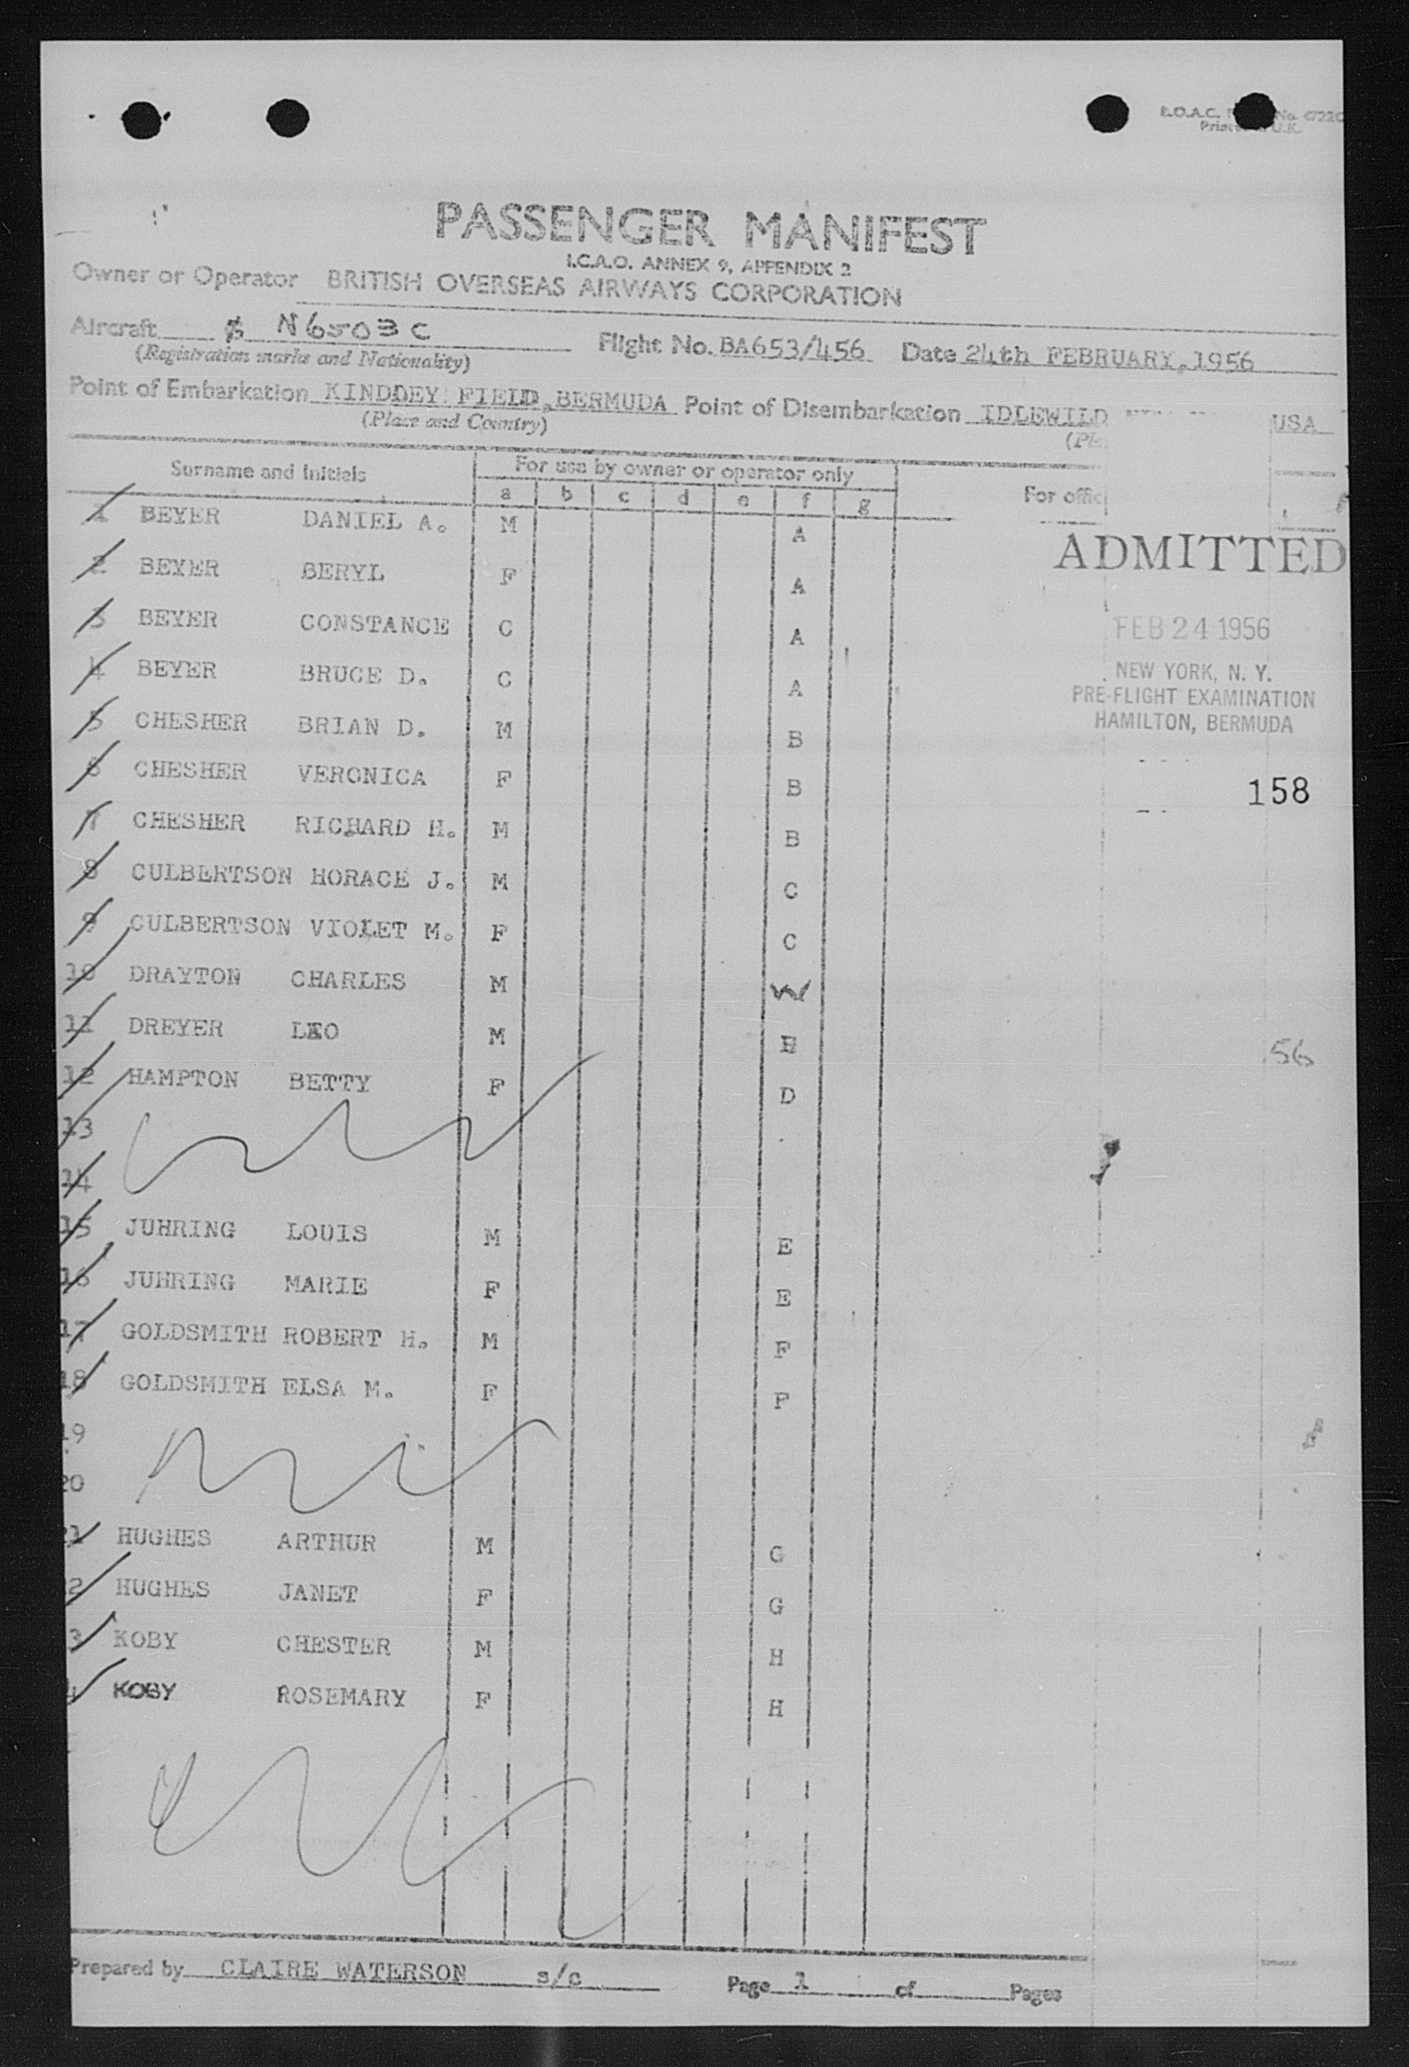 B.O.A.C.
PASSENGER MANIFEST
I.C.A.O. ANNEX 9, APPENDIX 2
Owner or Operator BRITISH OVERSEAS AIRWAYS CORPORATION
Aircraft N6503C Flight No. BA653/456 Date 24th FEBRUARY, 1956
(Registration marks and Nationality)
Point of Embarkation KINDDEY FIELD, BERMUDA Point of Disembarkation IDLEWILD USA
(Place and Country)
Surname and Initials For use by owner or operator only
a b c d e f g
1 BEYER DANIEL A. M A
ADMITTED
2 BEYER BERYL F A
3 BEYER CONSTANCE C A
FEB 24 1956
4 BEYER BRUCE D. C A
NEW YORK, N. Y.
PRE-FLIGHT EXAMINATION
HAMILTON, BERMUDA
5 CHESHER BRIAN D. M B
6 CHESHER VERONICA F B
158
7 CHESHER RICHARD H. M B
8 CULBERTSON HORACE J. M C
9 CULBERTSON VIOLET M. F C
10 DRAYTON CHARLES M
11 DREYER LEO M
56
12 HAMPTON BETTY F D
13
14
15 JUHRING LOUIS M E
16 JUHRING MARIE F E
17 GOLDSMITH ROBERT H. M F
18 GOLDSMITH ELSA M. F F
19
20
21 HUGHES ARTHUR M G
2 HUGHES JANET F G
3 KOBY CHESTER M H
4 KOBY ROSEMARY F H
Prepared by CLAIRE WATERSON s/c Page 1 of Pages